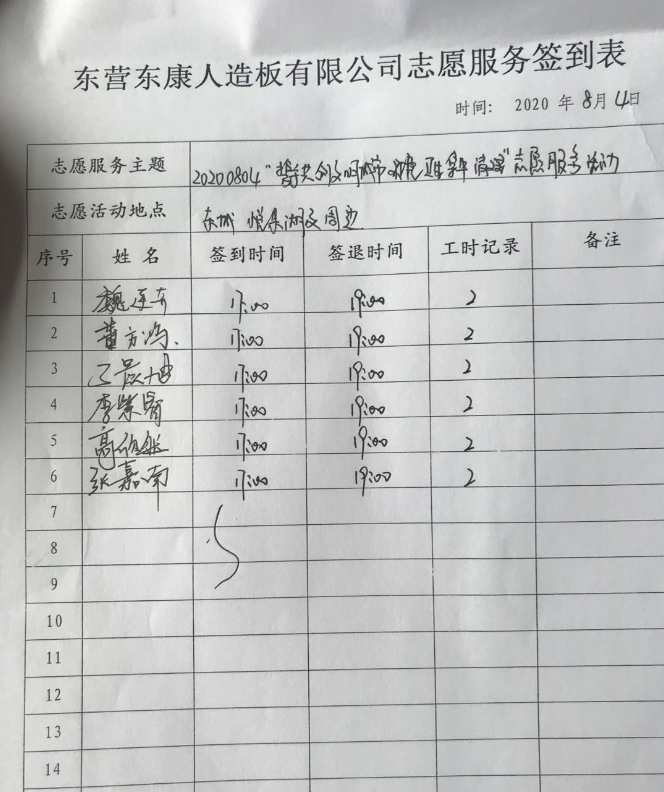 东营东康人造板有限公司志愿服务签到表
时间: 2020 年 8月 4日
志愿服务主题 20200804"创文明城市 环境卫生 清理"志愿服务活动
志愿活动地点 东城 悦来湖及周边
序号 姓 名 签到时间 签退时间 工时记录 备注
1 魏连奇 17:00 19:00 2
2 董方鸿 17:00 19:00 2
3 17:00 19:00 2
4 李荣 17:00 19:00 2
5 高 17:00 19:00 2
6 张嘉南 17:00 19:00 2
7
8
9
10
11
12
13
14